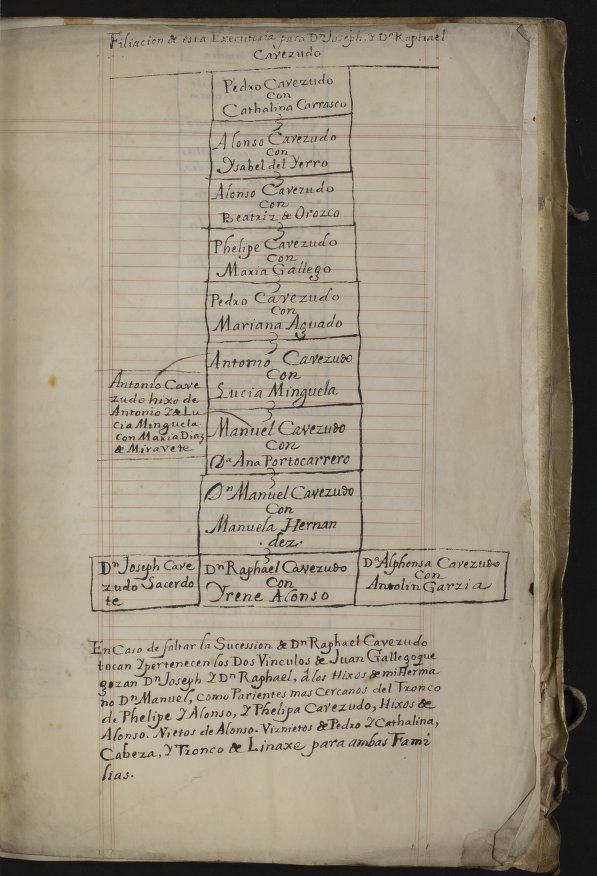 Filiacion de esta Executoria para Dn Joseph, Y Dn Raphael
Cavezudo
Pedro Cavezudo
con
Cathalina Carrasco
Alonso Cavezudo
con
Ysabel del Yerro
Alonso Cavezudo
con
Beatriz de Orozco
Phelipe Cavezudo
con
Maria Gallego
Pedro Cavezudo
con
Mariana Aguado
Antonio Cavezudo
con
Lucia Minguela
Antonio Cave
zudo hixo de
Antonio Y de Lu
cia Minguela
con Maria Dias
de Miravete
Manuel Cavezudo
con
Da Ana Portocarrero
Dn Manuel Cavezudo
con
Manuela Hernan
dez.
Dn Joseph Cave
zudo Sacerdo
te
Dn Raphael Cavezudo
con
Yrene Alonso
Da Alphonsa Cavezudo
con
Antolin Garzia
En Caso de faltar la Sucession de Dn Raphael Cavezudo
tocan Y pertenecen los Dos Vinculos de Juan Gallego que
gozan Dn Joseph Y Dn Raphael, â los Hixos de mi Herma
no Dn Manuel, como Parientes mas Cercanos del Tronco
de Phelipe Y Alonso, Y Phelipa Cavezudo, Hixos de
Alonso. Nietos de Alonso. Viznietos de Pedro Y Cathalina,
Cabeza, Y Tronco de Linaxe para ambas Fami
lias.